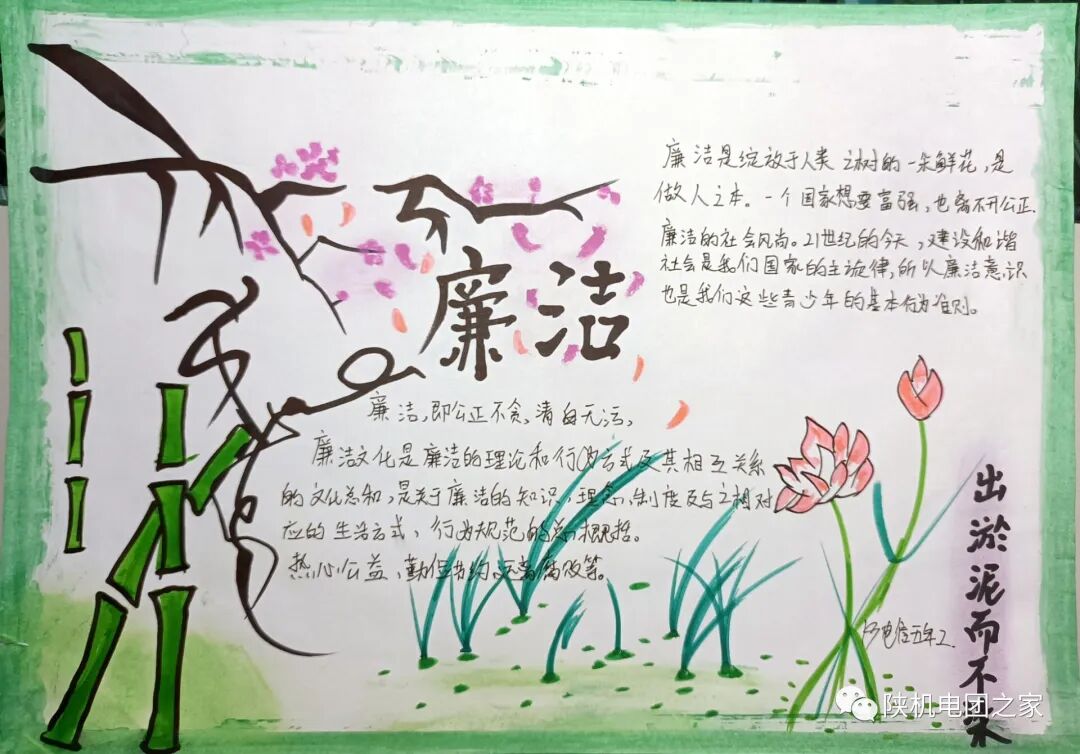 廉洁是绽放于人类之树的一朵鲜花,是
做人之本。一个国家想要富强,也离不开公正.
廉洁的社会风尚。21世纪的今天,建设和谐
社会是我们国家的主旋律,所以廉洁意识
也是我们这些青少年的基本行为准则。
廉洁
廉洁,即公正不贪,清白无污,
廉洁文化是廉洁的理论和行为方式及其相互关系
的文化总和,是关于廉洁的知识、理念、制度及与之相对
应的生活方式、行为规范的总概括。
热心公益、勤俭节约、远离腐败等。
出淤泥而不染
电信五年
陕机电团之家